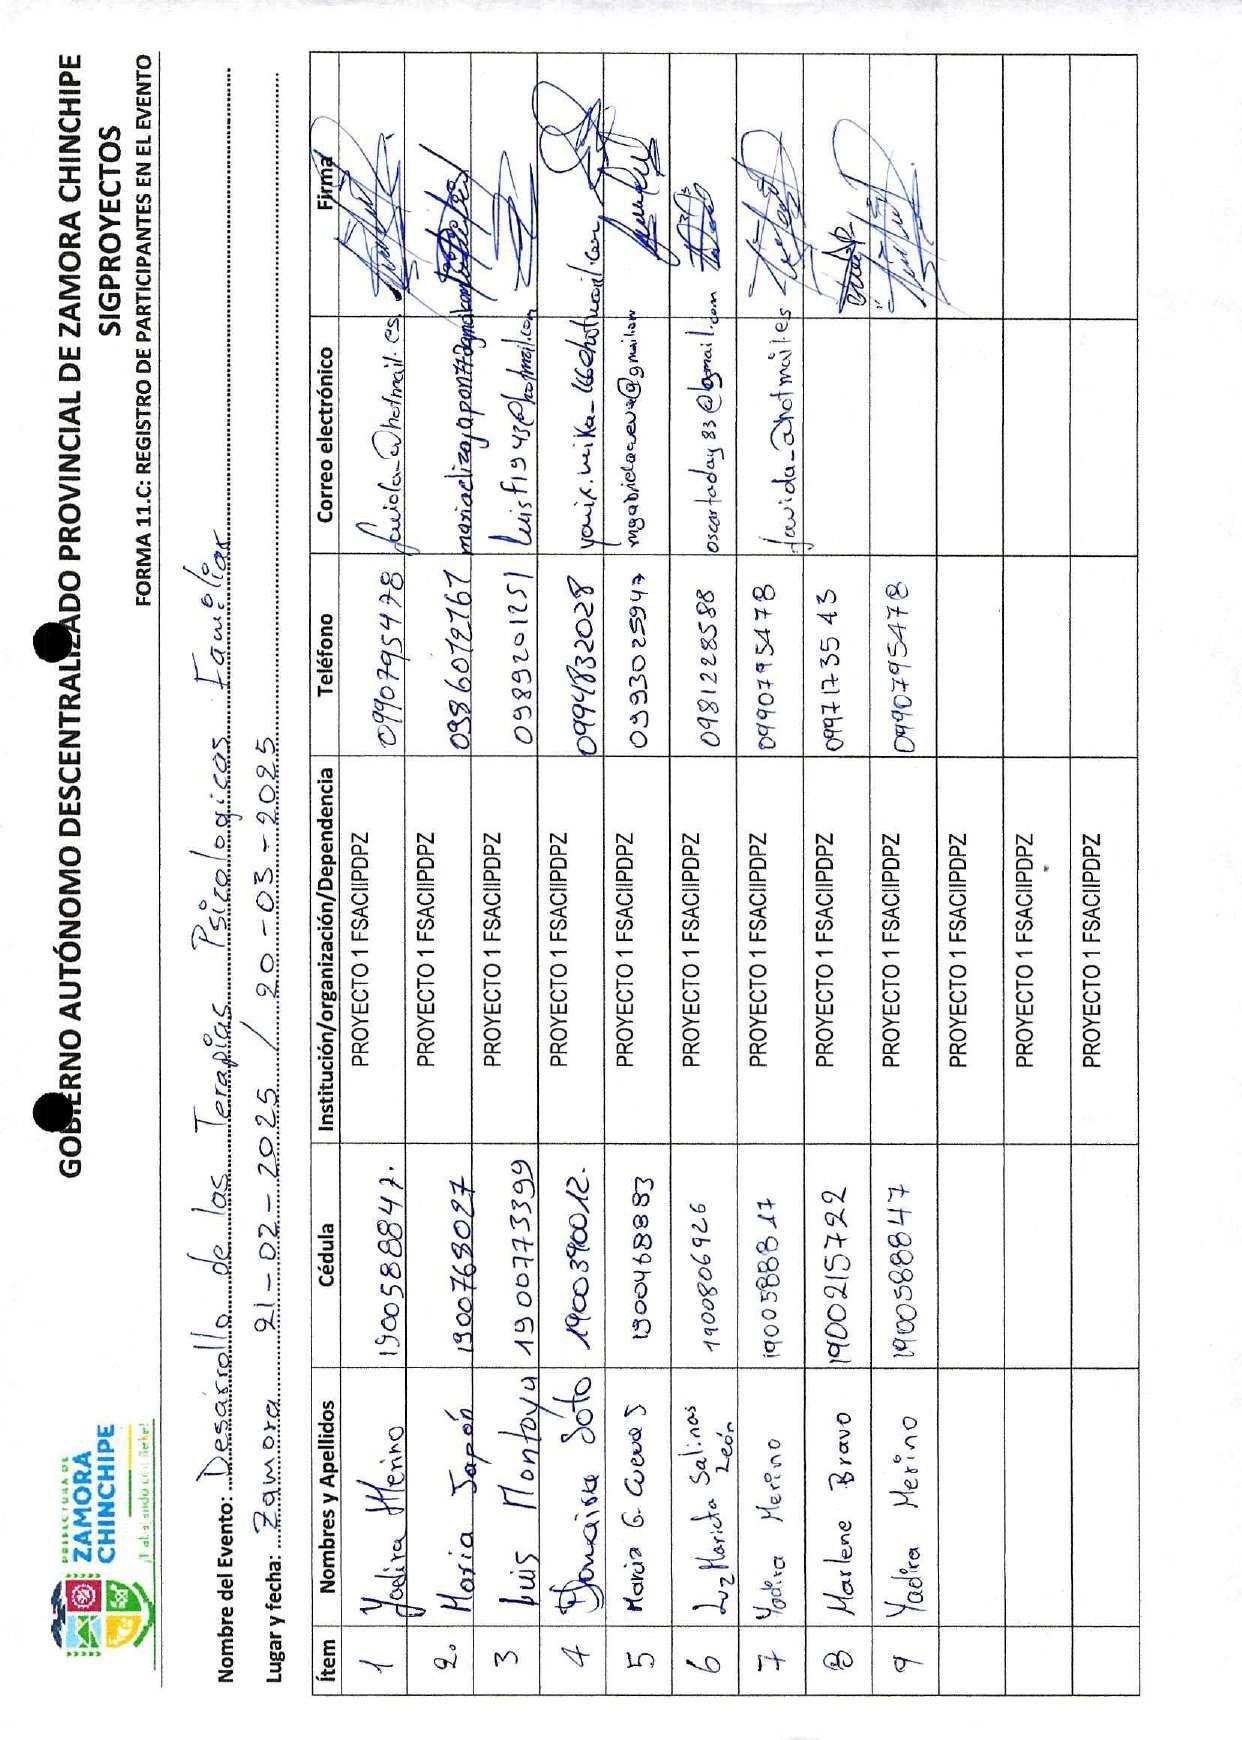 PREFECTURA DE
ZAMORA
CHINCHIPE
GOBIERNO AUTÓNOMO DESCENTRALIZADO PROVINCIAL DE ZAMORA CHINCHIPE
SIGPROYECTOS
FORMA 11.C: REGISTRO DE PARTICIPANTES EN EL EVENTO
Nombre del Evento: Desarrollo de las Terapias Psicologicas Familiar
Lugar y fecha: Zamora 21-02-2025 / 20-03-2025
Ítem Nombres y Apellidos Cédula Institución/organización/Dependencia Teléfono Correo electrónico Firma
1 Yadira Merino 1900588847. PROYECTO 1 FSACIIPDPZ 0990795478
2. Maria Japón 1900768027 PROYECTO 1 FSACIIPDPZ 0986072767
3 Luis Montoya 1900773399 PROYECTO 1 FSACIIPDPZ 0989201251 luisfig43@hotmail.com
4 Soto 1900390012. PROYECTO 1 FSACIIPDPZ 0994832028
5 Maria G. Cueva S 1900468883 PROYECTO 1 FSACIIPDPZ 0993025947
6 Luz Marieta Salinas León 1900806926 PROYECTO 1 FSACIIPDPZ 0981228588 oscartaday83@gmail.com
7 Yadira Merino 1900588817 PROYECTO 1 FSACIIPDPZ 0990795478
8 Marlene Bravo 1900215722 PROYECTO 1 FSACIIPDPZ 0997173543
9 Yadira Merino 1900588847 PROYECTO 1 FSACIIPDPZ 0990795478
PROYECTO 1 FSACIIPDPZ
PROYECTO 1 FSACIIPDPZ
PROYECTO 1 FSACIIPDPZ